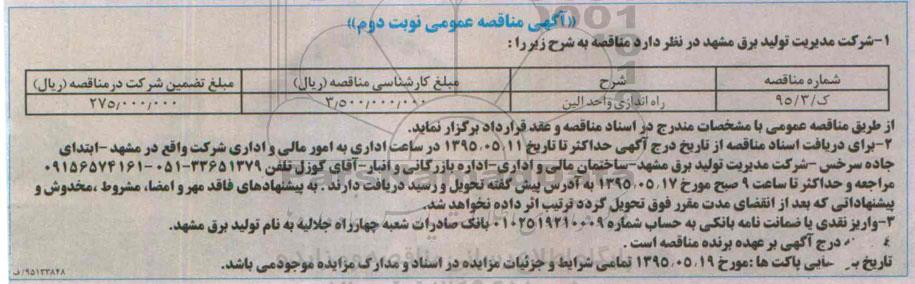 «آگهی مناقصه عمومی نوبت دوم»
۱-شرکت مدیریت تولید برق مشهد در نظر دارد مناقصه به شرح زیر را:
شماره مناقصه شرح مبلغ کارشناسی مناقصه (ریال) مبلغ تضمین شرکت در مناقصه (ریال)
ک/۹۵/۳ راه اندازی واحد الین ۳٫۵۰۰٫۰۰۰٫۰۰۰ ۲۷۵٫۰۰۰٫۰۰۰
از طریق مناقصه عمومی با مشخصات مندرج در اسناد مناقصه و عقد قرارداد برگزار نماید.
۲-برای دریافت اسناد مناقصه از تاریخ درج آگهی حداکثر تا تاریخ ۱۳۹۵٫۰۵٫۱۱ در ساعت اداری به امور مالی و اداری شرکت واقع در مشهد-ابتدای
جاده سرخس-شرکت مدیریت تولید برق مشهد-ساختمان مالی و اداری-اداره بازرگانی و انبار-آقای گوزل تلفن ۳۳۶۵۱۳۷۹-۰۵۱-۰۹۱۵۶۵۷۴۱۶۱
مراجعه و حداکثر تا ساعت ۹ صبح مورخ ۱۳۹۵٫۰۵٫۱۷ به آدرس پیش گفته تحویل و رسید دریافت دارند. به پیشنهادهای فاقد مهر و امضا، مشروط، مخدوش و
پیشنهاداتی که بعد از انقضای مدت مقرر فوق تحویل گردد ترتیب اثر داده نخواهد شد.
۳-واریز نقدی یا ضمانت نامه بانکی به حساب شماره ۰۱۰۲۵۱۹۲۱۰۰۰۹ بانک صادرات شعبه چهارراه جلالیه به نام تولید برق مشهد.
درج آگهی بر عهده برنده مناقصه است.
تاریخ پاکت ها: مورخ ۱۳۹۵٫۰۵٫۱۹ تمامی شرایط و جزئیات مزایده در اسناد و مدارک مزایده موجود می باشد.
۹۵۱۳۳۸۴۸/ف